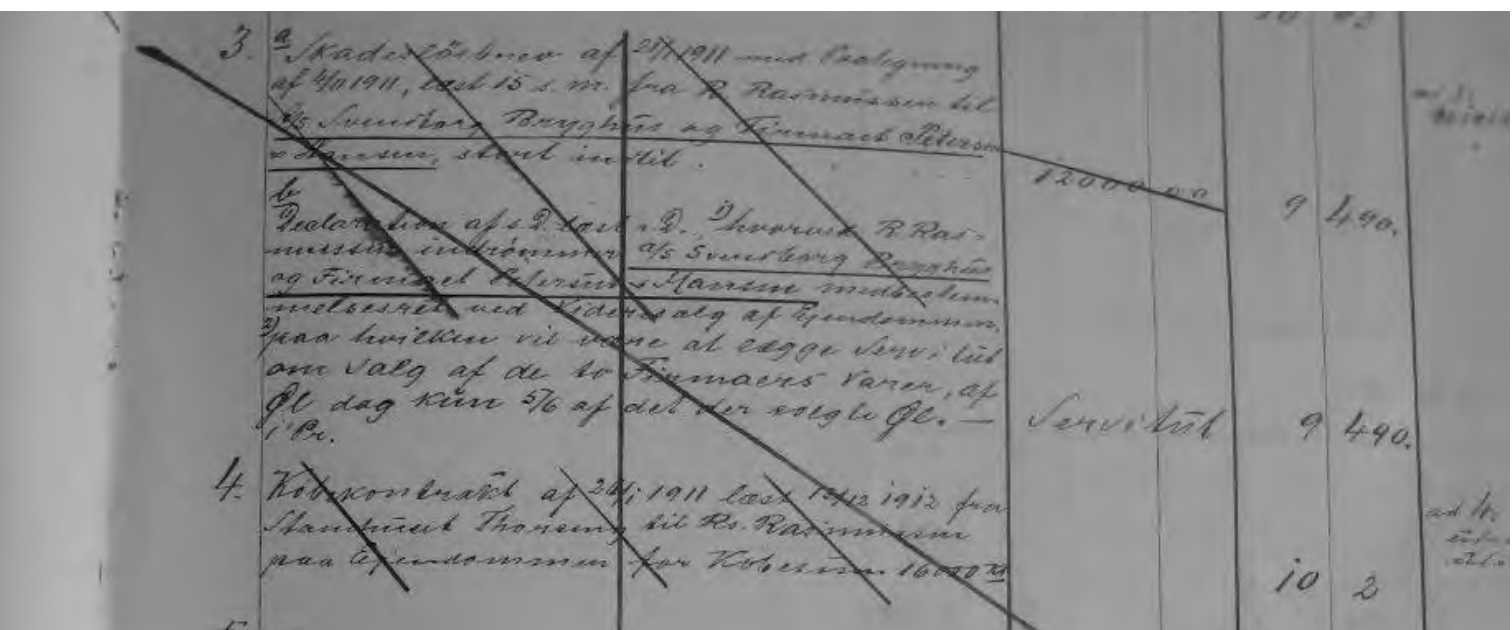 10
3. a Skadesløsbrev af 25/1 1911 med Paategning
af 4/11 1911, læst 15 s. m. fra R Rasmussen til
A/S Svendborg Bryghus og Firmaet Petersen
& Hansen, stort indtil . 12000 00 9 490.
b
Declaration af s. D. læst s. D. 1) hvorved R Ras-
mussen indrømmer A/S Svendborg Bryghus
og Firmaet Petersen & Hansen medbestem-
melsesret ved Videresalg af Ejendommen.
2) paa hvilken vil være at lægge Servitut
om Salg af de to Firmaers Varer, af
Øl dog kun 5/6 af det der solgte Øl. — Servitut 9 490.
i Pr.
4. Købekontrakt af 1911 læst 1912 fra
til Rs. Rasmussen
paa Ejendommen for Købesum 16000 10 2
ad 4.